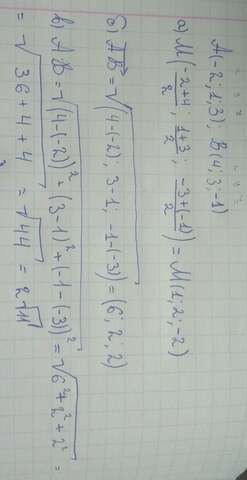 A(-2; 1; 3); B(4; 3; -1)
а) M(\frac{-2+4}{2}; \frac{1+3}{2}; \frac{-3+(-1)}{2}) = M(1; 2; -2)
б) \overline{AB} = √(4-(-2); 3-1; -1-(-3)) = (6; 2; 2)
в) AB = √((4-(-2))² + (3-1)² + (-1-(-3))²) = √(6²+2²+2²) =
= √(36+4+4) = √44 = 2√11